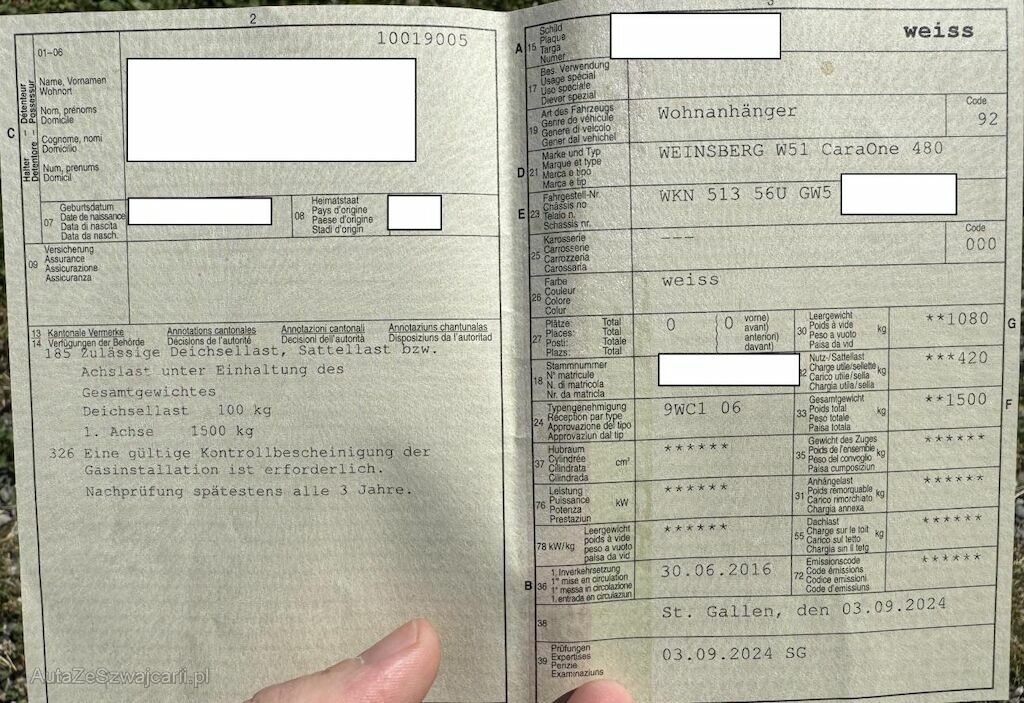 2
10019005
01-06
C
Halter Détenteur
Detentore Possessur
Name, Vornamen
Wohnort
Nom, prénoms
Domicile
Cognome, nomi
Domicilio
Num, prenums
Domicil
07
Geburtsdatum
Date de naissance
Data di nascita
Data da nasch.
08
Heimatstaat
Pays d'origine
Paese d'origine
Stadi d'origin
09
Versicherung
Assurance
Assicurazione
Assicuranza
13 Kantonale Vermerke Annotations cantonales Annotazioni cantonali Annotaziuns chantunalas
14 Verfügungen der Behörde Décisions de l'autorité Decisioni dell'autorità Disposiziuns da l'autoritad
185 Zulässige Deichsellast, Sattellast bzw.
Achslast unter Einhaltung des
Gesamtgewichtes
Deichsellast 100 kg
1. Achse 1500 kg
326 Eine gültige Kontrollbescheinigung der
Gasinstallation ist erforderlich.
Nachprüfung spätestens alle 3 Jahre.
3
A 15
Schild
Plaque
Targa
Numer
weiss
17
Bes. Verwendung
Usage spécial
Uso speciale
Diever spezial
19
Art des Fahrzeugs
Genre de véhicule
Genere di veicolo
Gener dal vehichel
Wohnanhänger
Code
92
D 21
Marke und Typ
Marque et type
Marca e tipo
Marca e tip
WEINSBERG W51 CaraOne 480
E 23
Fahrgestell-Nr.
Châssis no
Telaio n.
Schassis nr.
WKN 513 56U GW5
25
Karosserie
Carrosserie
Carrozzeria
Carossaria
---
Code
000
26
Farbe
Couleur
Colore
Colur
weiss
27
Plätze: Total
Places: Total
Posti: Totale
Plazs: Total
0
( 0 vorne)
avant)
anteriori)
davant)
30
Leergewicht
Poids à vide
Peso a vuoto
Paisa da vid
kg
**1080
G
18
Stammnummer
N° matricule
N. di matricola
Nr. da matricla
32
Nutz-/Sattellast
Charge utile/sellette
Carico utile/sella
Chargia utila/sella
kg
***420
24
Typengenehmigung
Réception par type
Approvazione del tipo
Approvaziun dal tip
9WC1 06
33
Gesamtgewicht
Poids total
Peso totale
Paisa totala
kg
**1500
F
37
Hubraum
Cylindrée
Cilindrata
Cilindrada
cm³
******
35
Gewicht des Zuges
Poids de l'ensemble
Peso del convoglio
Paisa cumposiziun
kg
******
76
Leistung
Puissance
Potenza
Prestaziun
kW
******
31
Anhängelast
Poids remorquable
Carico rimorchiato
Chargia annexa
kg
******
78 kW/kg
Leergewicht
poids à vide
peso a vuoto
paisa da vid
******
55
Dachlast
Charge sur le toit
Carico sul tetto
Chargia sin il tetg
kg
******
B 36
1. Inverkehrsetzung
1re mise en circulation
1a messa in circolazione
1. entrada en circulaziun
30.06.2016
72
Emissionscode
Code émissions
Codice emissioni
Code d'emissiuns
******
38
St. Gallen, den 03.09.2024
39
Prüfungen
Expertises
Perizie
Examinaziuns
03.09.2024 SG
AutaZeSzwajcarii.pl